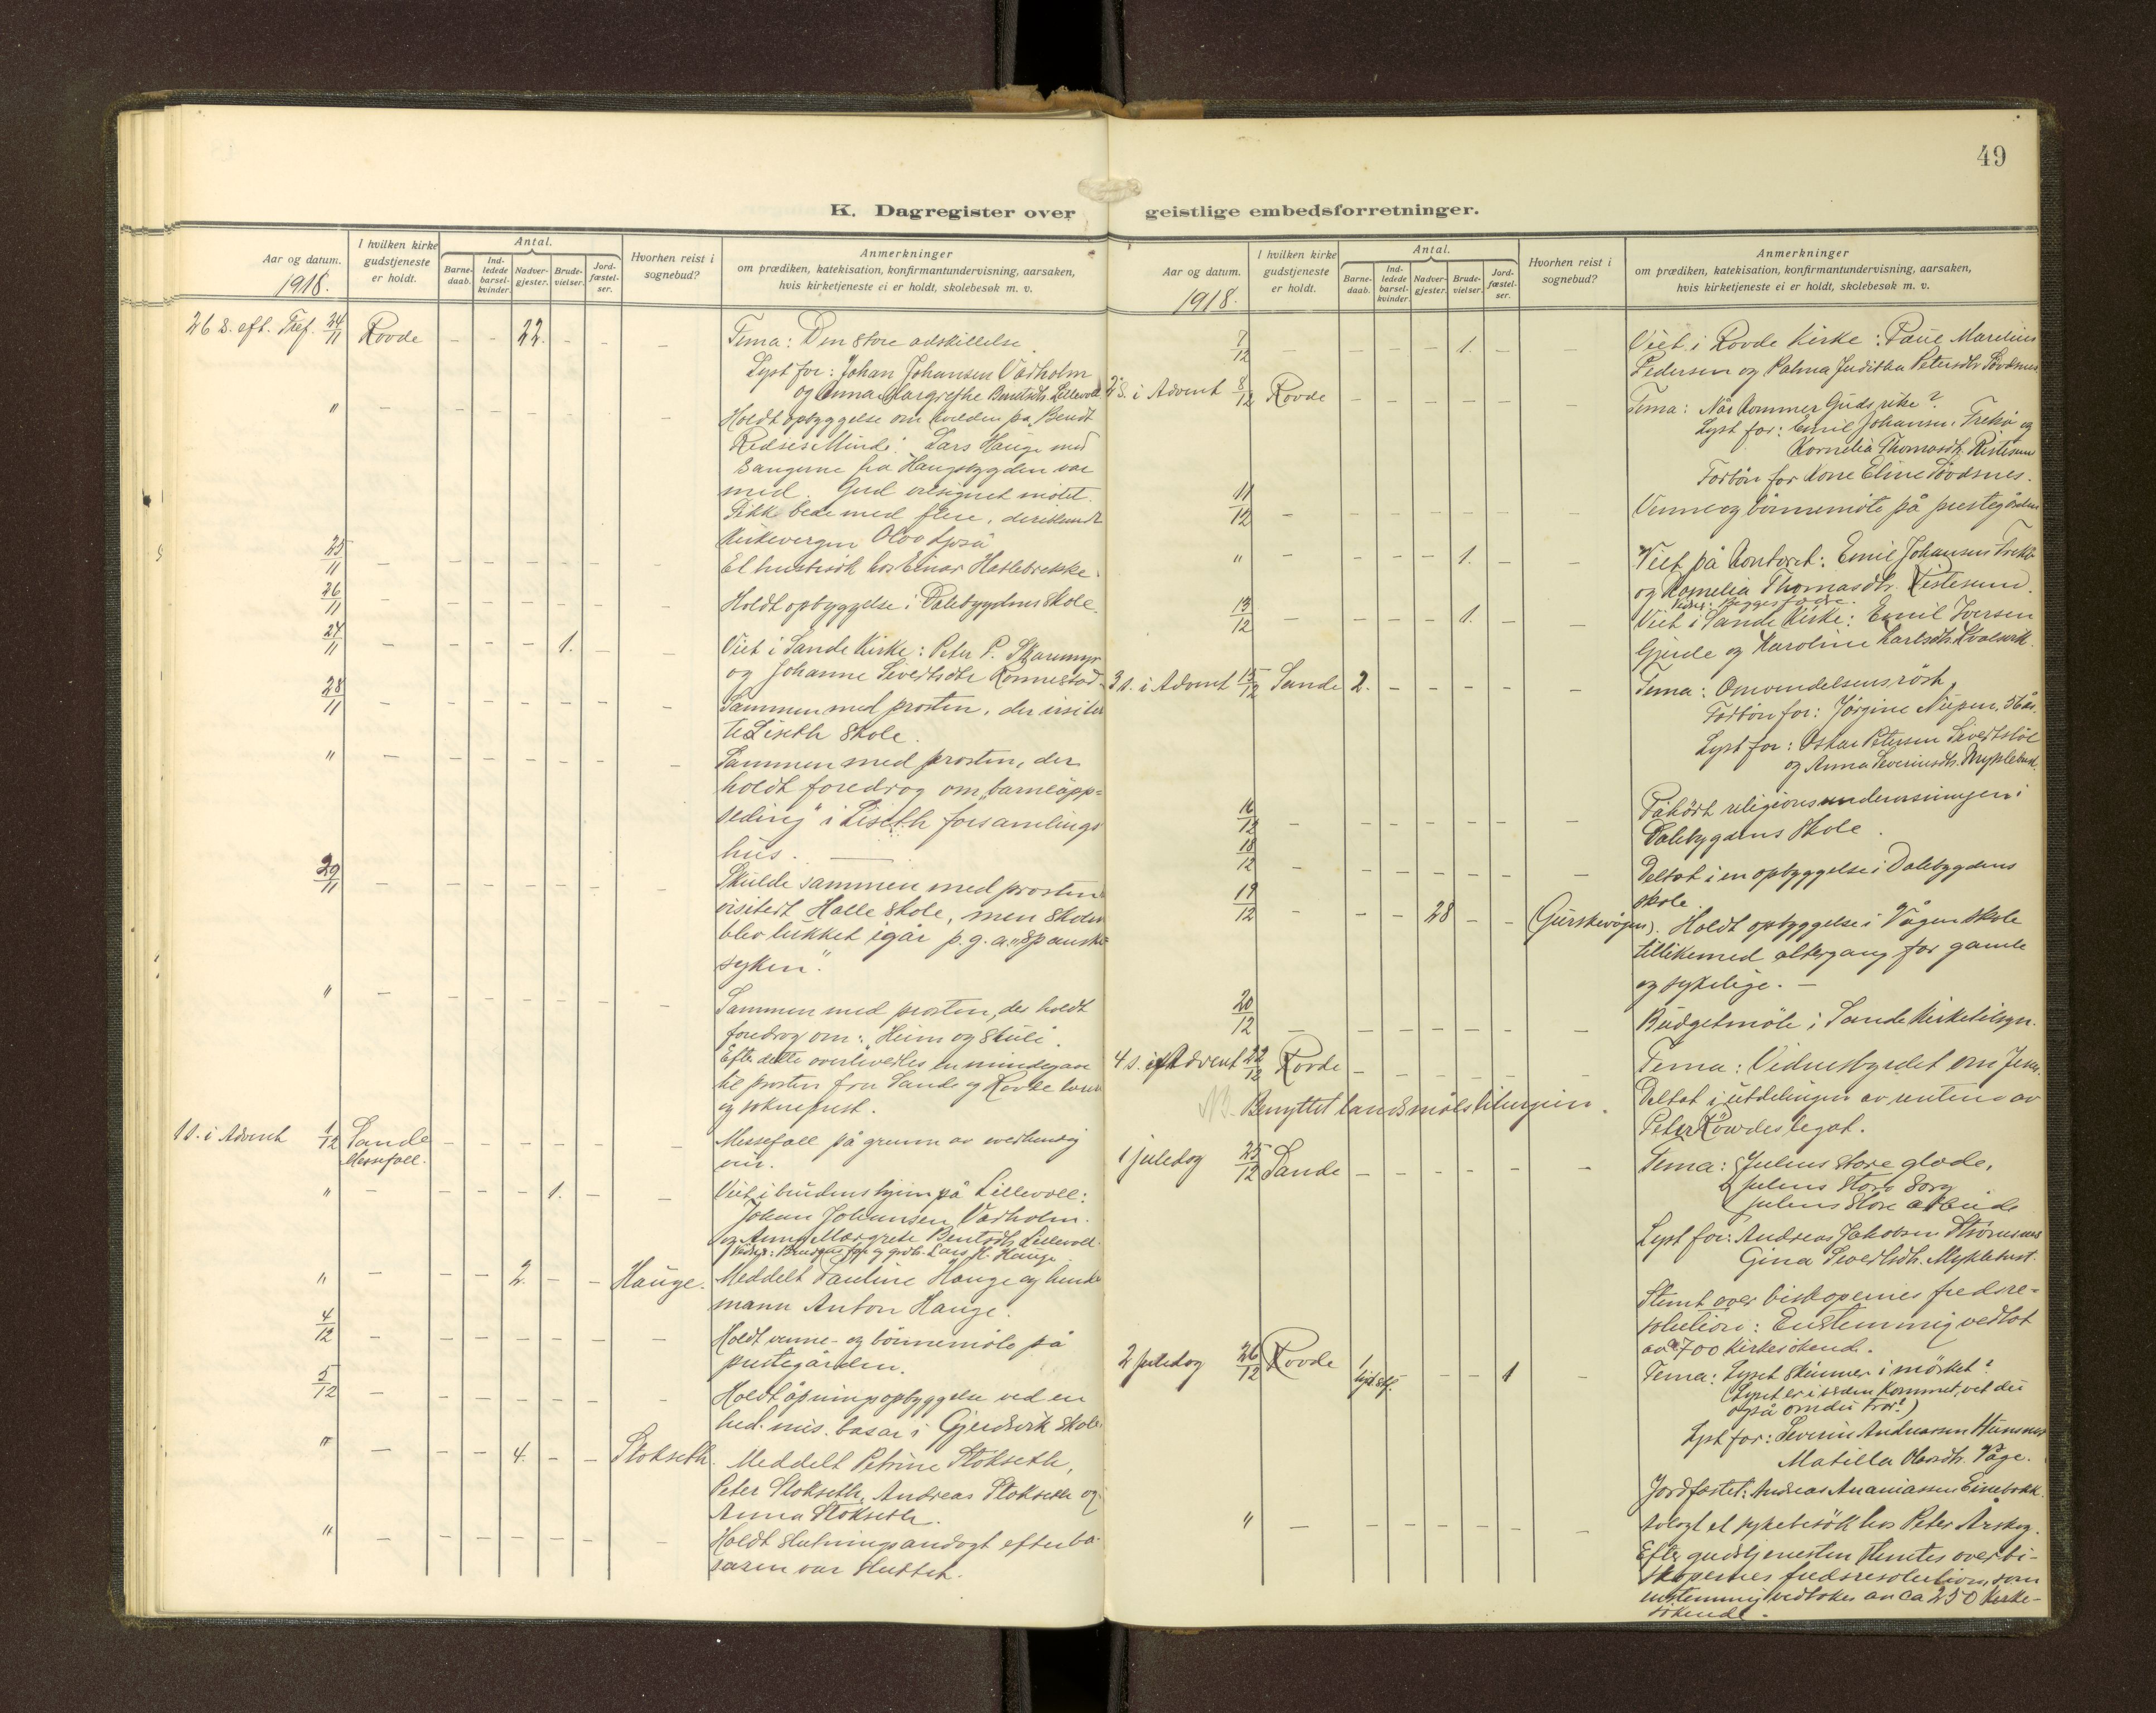 49
K. Dagregister over geistlige embedsforretninger.
Aar og datum.
1918.
I hvilken kirke
gudstjeneste
er holdt.
Antal.
Barne-
daab.
Ind-
ledede
barsel-
kvinder.
Nadver-
gjester.
Brude-
vielser.
Jord-
fæstel-
ser.
Hvorhen reist i
sognebud?
Anmerkninger
om prædiken, katekisation, konfirmantundervisning, aarsaken,
hvis kirketjeneste ei er holdt, skolebesøk m. v.
26 s. eft. Tref. 24/11 Rovde - - 22. - - - Tema: Den store adskillelse.
Lyst for: Johan Johansen Vadholm
og Anna Margrethe Bentsdtr. Lillevoll
" - - - - - - - Holdt opbyggelse om kvelden på Bendt
Minde. Lars Hauge med
Sangerne fra Haugsbygden var
med. Gud velsignet møtet.
Fikk bede med flere, deriblandt
Kirkevergen Olav
25/11 - - - - - - - Et husbesøk hos Einar Hatlebrekke.
26/11 - - - - - - - Holdt opbyggelse i Dalebygdens skole.
27/11 - - - - 1. - - Viet i Sande Kirke: Peter P. Skarmyr
og Johanne Sivertsdtr. Rønnestad.
28/11 - - - - - - - Sammen med prosten, der visiter
te Liseth skole.
" - - - - - - - Sammen med prosten, der
holdt foredrag om "barneopp=
seding" i Liseth forsamlings
hus.
29/11 - - - - - - - Skulde sammen med prosten
visitert Halle skole, men skolen
blev lukket igår p.g.a. "spanske
syken".
" - - - - - - - Sammen med prosten, der holdt
foredrag om: Heim og skule.
Efter dette overleveredes en mindegave
til prosten fra Sande og Rovde
og sokneprest.
1 s. i Advent 1/12 Sande - - - - - - Messefall på grunn av
Messefall.
veir.
" - - - - 1. - - Viet i brudens hjem på Lillevoll:
Johan Johansen Vadholm
og Anna Margrete Bentsdtr. Lillevoll.
Lars H. Hauge
" - - - 2. - - Hauge. Meddelt Pauline Hauge og hendes
mann Anton Hauge.
4/12 - - - - - - - Holdt venne- og bønnemøte på
prestegården.
5/12 - - - - - - - Holdt åpningsopbyggelse ved en
hed. mis. basar i Gjerdsvik skole.
" - - - 4. - - Stokseth. Meddelt Petrine Stokseth,
Peter Stokseth, Andreas Stokseth og
Anna Stokseth.
" - - - - - - - Holdt slutningsandagt efter ba-
saren var sluttet.
Aar og datum.
1918.
I hvilken kirke
gudstjeneste
er holdt.
Antal.
Barne-
daab.
Ind-
ledede
barsel-
kvinder.
Nadver-
gjester.
Brude-
vielser.
Jord-
fæstel-
ser.
Hvorhen reist i
sognebud?
Anmerkninger
om prædiken, katekisation, konfirmantundervisning, aarsaken,
hvis kirketjeneste ei er holdt, skolebesøk m. v.
7/12 - - - - 1. - - Viet i Rovde Kirke: Paul Marelius
Pedersen og Palma Juditha Petersdtr. Søvdsnes.
2 s. i Advent 8/12 Rovde - - - - - - Tema: Når kommer Guds rike?
Lyst for: Emil Johansen Trekø og
Kornelia Thomasdtr. Ristesund
Forbøn for kone Eline Søvdsnes.
11/12 - - - - - - - Venne og bønnemøte på prestegården
" - - - - 1. - - Viet på kontoret: Emil Johansen Trekø
og Kornelia Thomasdtr. Ristesund.
13/12 - - - - 1. - - Viet i Sande Kirke: Emil Iversen
Gjerde og Karoline Karlsdtr. Kvalsvik.
3 s. i Advent 15/12 Sande 2. - - - - - Tema: Omvendelsens røst.
Forbøn for: Jørgine Nupen, 36 år.
Lyst for: Oskar Petersen Sivertstøl
og Anna Severinsdtr. Myklebust.
16/12 - - - - - - - Påhørt religionsundervisningen i
Dalebygdens skole.
18/12 - - - - - - - Deltat i en opbyggelse i Dalebygdens
skole.
19/12 - - - 28 - - (Gurskevågen). Holdt opbyggelse i Vågen skole
tillikemed altergang for gamle
og sykelige. -
20/12 - - - - - - - Budgetmøte i Sande Kirketilsyn.
4 s. i Advent 22/12 Rovde - - - - - - Tema: Vidnesbyrdet om Jesus.
NB. Benyttet landsmålsliturgien.
Deltat i utdelingen av renten av
Peter Røvdes legat.
1 juledag 25/12 Sande - - - - - - Tema: Julens store glæde,
Julens store sorg
Julens store arbeide
Lyst for: Andreas Jakobsen
Gina Sivertsdtr. Myklebust.
Stemt over biskopernes fredsre-
solution: Enstemmig vedtat
av 700 kirkesøkend.
2 juledag 26/12 Rovde 1 - - 1 - Tema: Lyset skinner i mørket?
(Lyset er i verden kommet, vet du
også om du tror?)
Lyst for: Severin Andreassen
Matilla Olavsdtr. Våge.
Jordfæstet: Andreas Ananiassen Eineb
" - - - - - - - Avlagt et sykebesøk hos Peter Årskog.
Efter gudstjenesten stemtes over bi-
skopernes fredsresolution, som
enstemmig vedtokes av ca 250 kirke-
søkende.